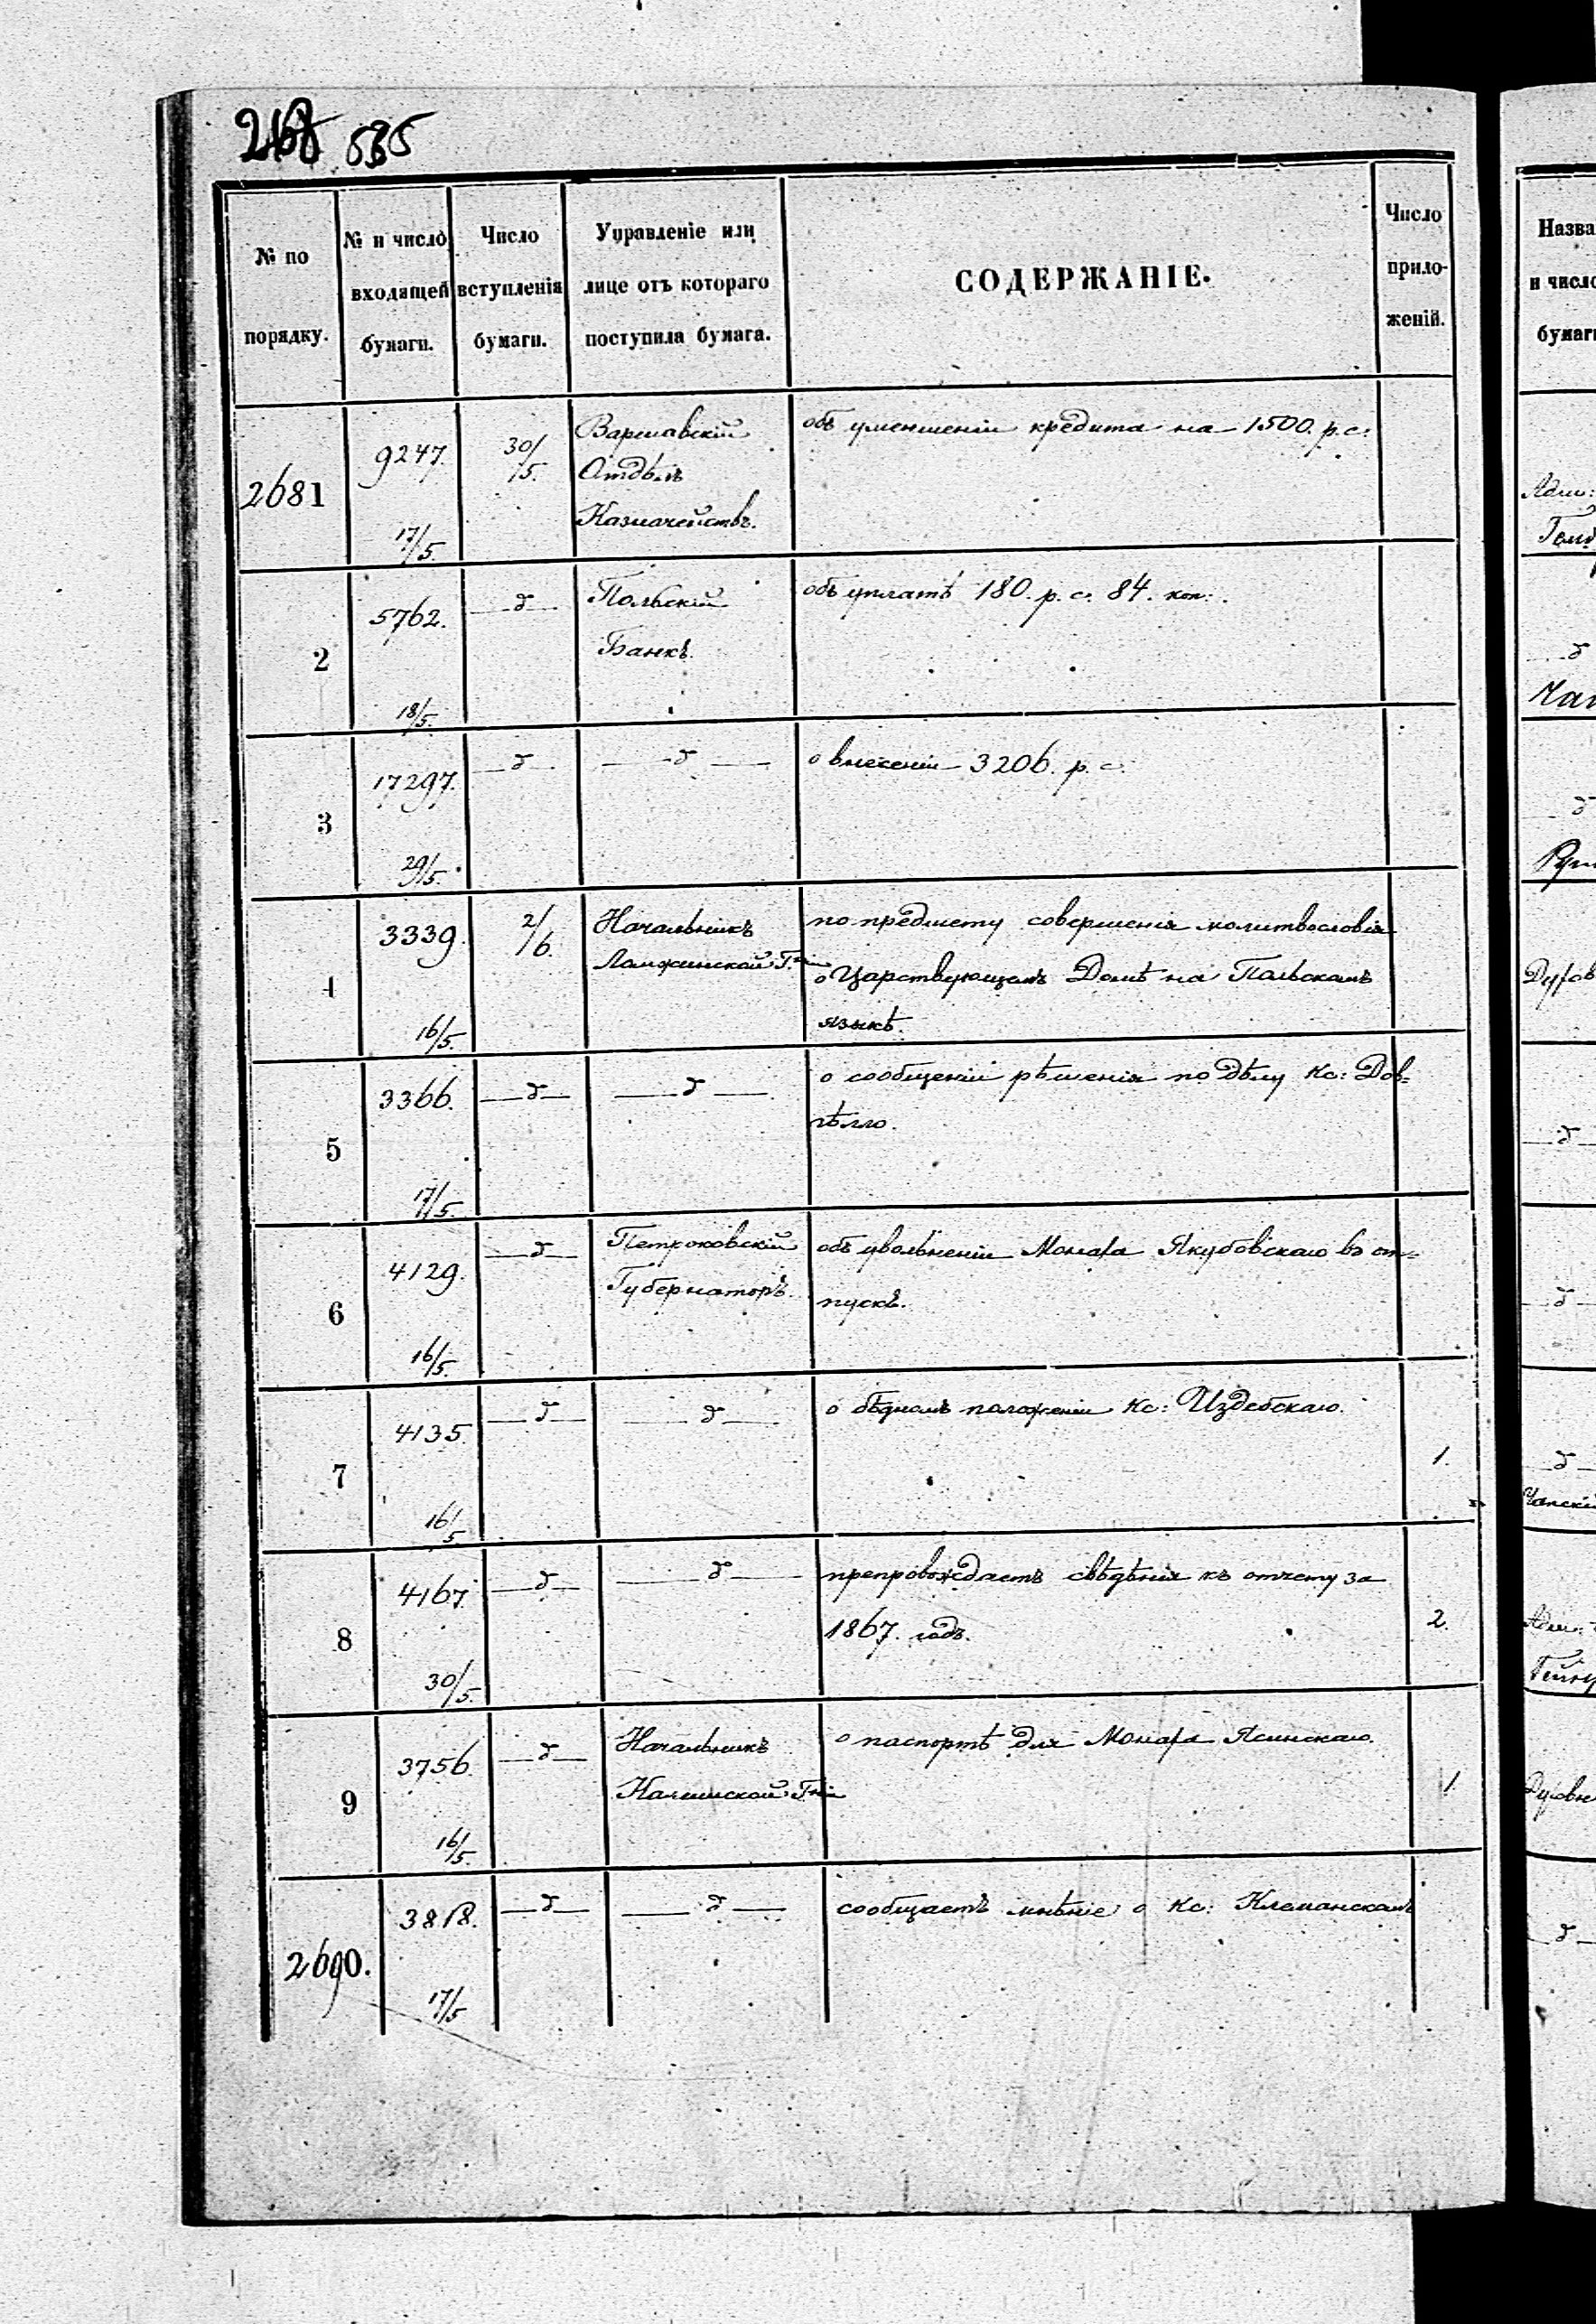 268 535
№ по порядку.
№ и число входящей бумаги.
Число вступленія бумаги.
Управленіе или лице отъ котораго поступила бумага.
СОДЕРЖАНІЕ.
Число прило-
женій.
2681
9247.
17/5.
30/5.
Варшавскій
Отдѣлъ
Казначействъ.
объ уменшеніи кредита на 1500. р. с.
2
5762.
18/5.
—д—
Польскій
Банкъ.
объ уплатѣ 180. р. с. 84. коп:.
3
17297.
29/5.
—д—
—д—
о внесеніи 3206. р. с.
4
3339.
16/5.
2/6.
Начальникъ
Ломжинской Г-ніи
по предмету совершенія молитвословія
о Царствующемъ Домѣ на Польскомъ
языкѣ.
5
3366.
17/5.
—д—
—д—
о сообщеніи рѣшенія по дѣлу Кс: Дов=
гѣлло.
6
4129.
16/5.
—д—
Петроковскій
Губернаторъ.
объ увольненіи Монаха Якубовскаго въ от=
пускъ.
7
4135.
16/5
—д—
—д—
о бѣдномъ положеніи Кс: Издебскаго.
1.
8
4167.
30/5.
—д—
—д—
препровождаетъ свѣдѣнія къ отчету за
1867. годъ.
2.
9
3756.
16/5.
—д—
Начальникъ
Калишской Г-ніи
о паспортѣ для Монаха Ясинскаго.
1
2690.
3818.
17/5
—д—
—д—
сообщаетъ мнѣніе о Кс: Клеманскомъ
Назва
и число
бумаги
—д
—д
—д—
—д—
—д—
—д—